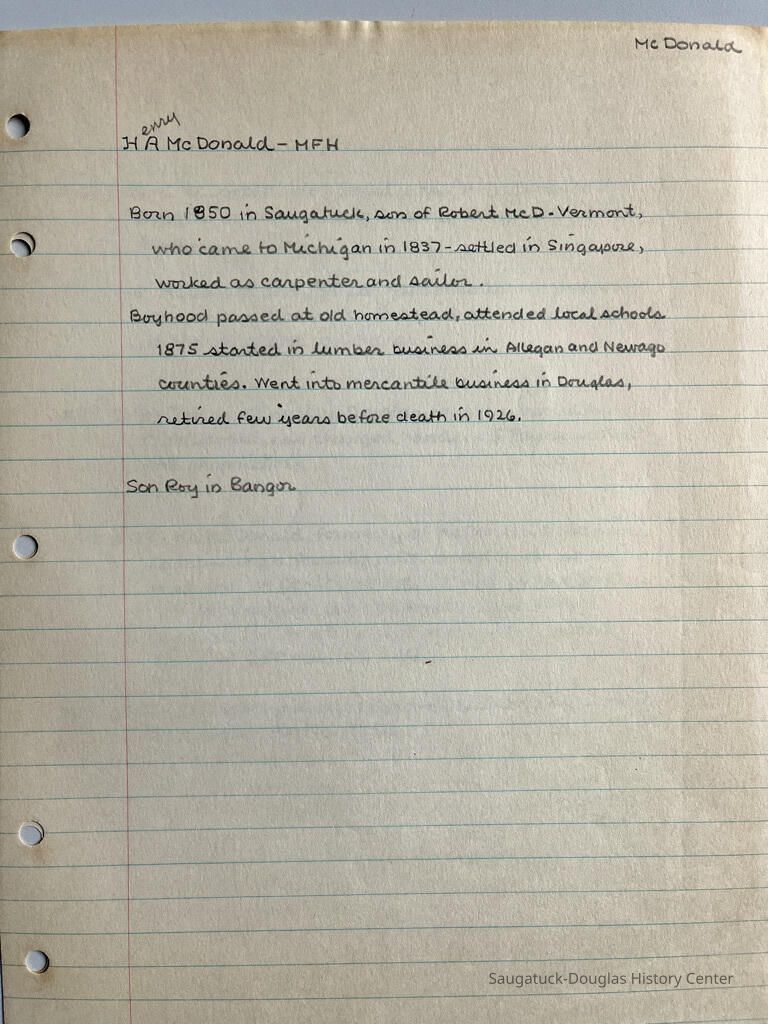 McDonald
Henry A McDonald - MFH
Born 1850 in Saugatuck, son of Robert McD. Vermont,
who came to Michigan in 1837 - settled in Singapore,
worked as carpenter and sailor.
Boyhood passed at old homestead, attended local schools
1875 started in lumber business in Allegan and Newago
counties. Went into mercantile business in Douglas,
retired few years before death in 1926.
Son Roy in Bangor
Saugatuck-Douglas History Center